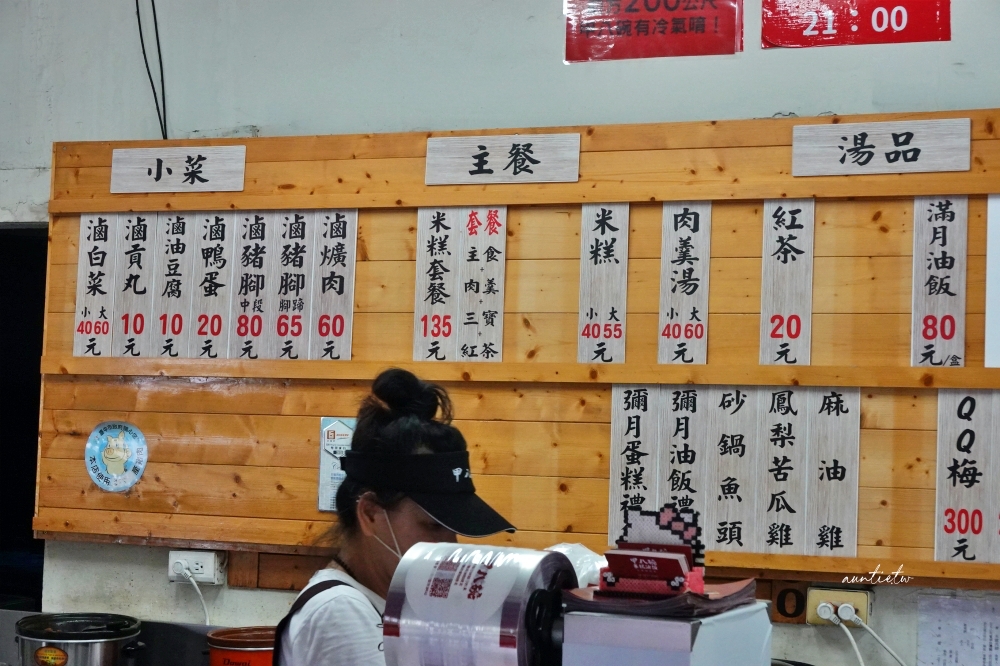 200公尺
甲八碗有冷氣唷！
21：00
小菜
主餐
湯品
滷白菜 小40 大60 元
滷貢丸 10 元
滷油豆腐 10 元
滷鴨蛋 20 元
滷豬腳 中段 80 元
滷豬腳 腳蹄 65 元
滷爌肉 60 元
米糕套餐 135 元
套餐
主食
肉羹
三寶
紅茶
米糕 小40 大55 元
肉羹湯 小40 大60 元
紅茶 20 元
滿月油飯 80 元/盒
彌月蛋糕禮
彌月油飯禮
砂鍋魚頭
鳳梨苦瓜雞
麻油雞
QQ梅 300 元
本店使用
甲八
甲八碗
auntietw